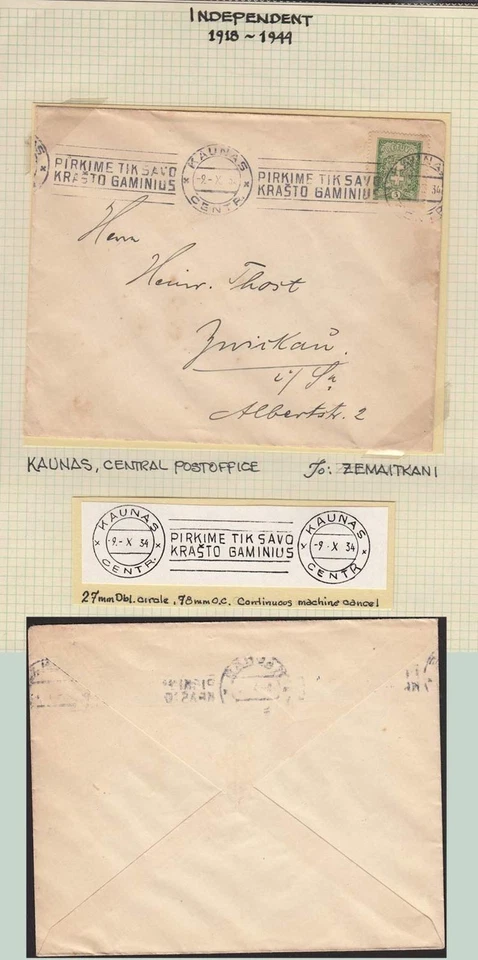 INDEPENDENT
1918 ~ 1944
PIRKIME TIK SAVO
KRAŠTO GAMINIUS
KAUNAS
-9.-X 34
CENTR.
PIRKIME TIK SAVO
KRAŠTO GAMINIUS
KAUNAS
34
Herrn
Heinr. Thost
Zwickau.
i/ Sa
Albertstr. 2
KAUNAS, CENTRAL POSTOFFICE To: ZEMAITKANI
KAUNAS
-9.-X 34
CENTR.
PIRKIME TIK SAVO
KRAŠTO GAMINIUS
KAUNAS
-9 -X 34
CENTR.
27mm Dbl. circle, 78mm O.C. Continuous machine cancel